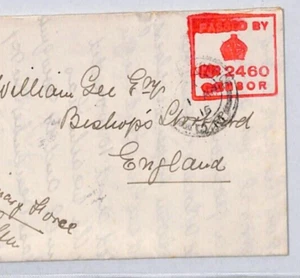 PASSED BY
2460
CENSOR
William Gee Esq
Bishop's Stortford
England
Force